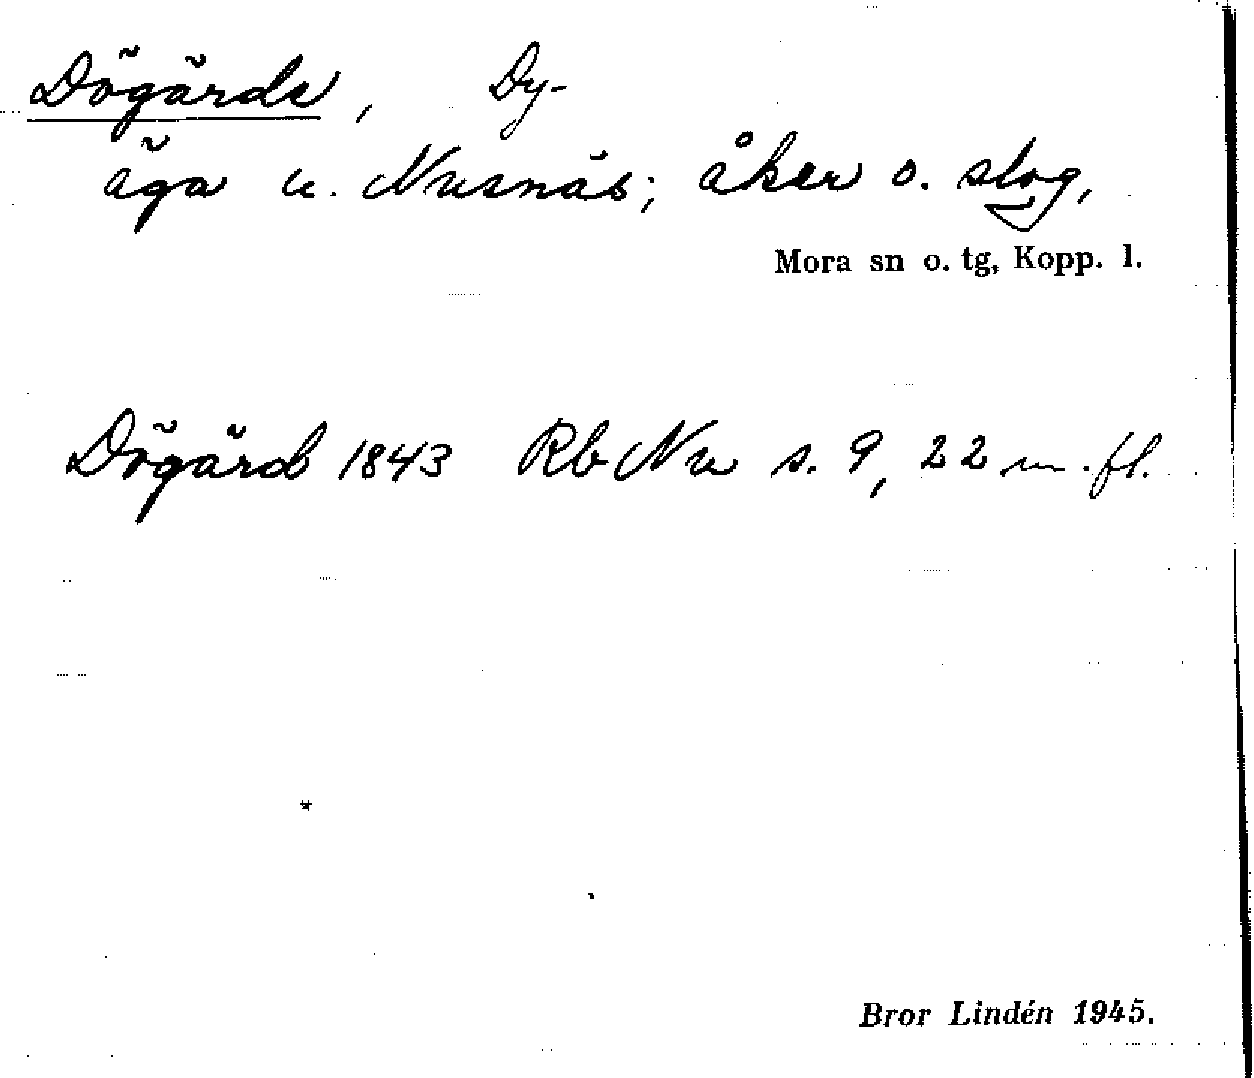 Dögärde, Dy-
äga u. Nusnäs; åker o. slog,
Mora sn o. tg, Kopp. l.
Dögärd 1843 Rb Nu s. 9, 22 m. fl.
Bror Lindén 1945.